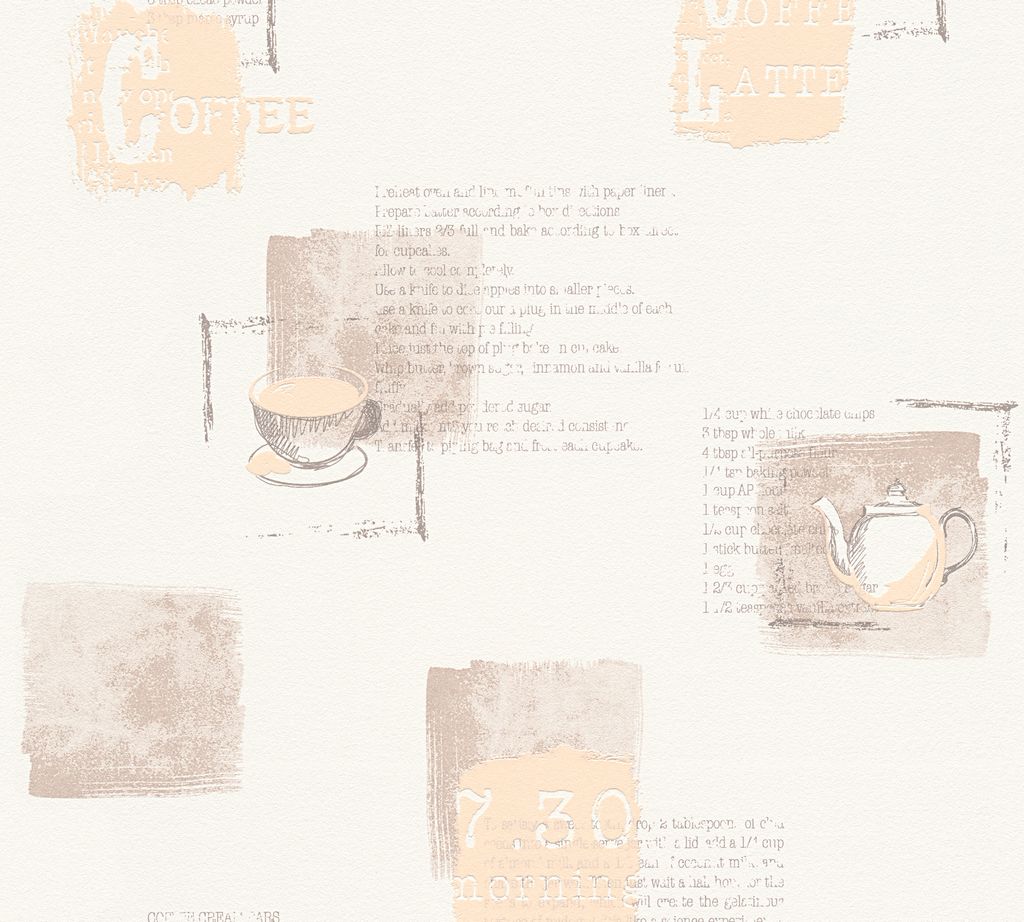 3 tbsp maple syrup
COFFEE
COFFE
LATTE
Preheat oven and line muffin tins with paper liners.
Prepare batter according to box directions
Fill liners 2/3 full and bake according to box direct
for cupcakes.
Allow to cool completely.
Use a knife to dice apples into smaller pieces.
Use a knife to core our a plug in the middle of each
cake and fill with pie filling
Place just the top of plug back on cupcake.
Whip butter, brown sugar, cinnamon and vanilla
fluffy
Gradually add powdered sugar.
Add milk until you reach desired consistenc
Transfer to piping bag and frost each cupcake.
1/4 cup white chocolate chips
3 tbsp whole milk
4 tbsp all-purpose flour
1/4 tsp baking powder
1 cup AP flour
1 teaspoon salt
1/2 cup chocolate chips
1 stick butter, melted
1 egg
1 2/3 cup packed brown sugar
1 1/2 teaspoons vanilla extract
7.30
morning
drop 2 tablespoons of chia
seeds into a single serve jar with a lid add a 1/4 cup
of almond milk and a 1/4 can of coconut milk and
Then just wait a half hour for the
will create the gelatinous
like a science experiment